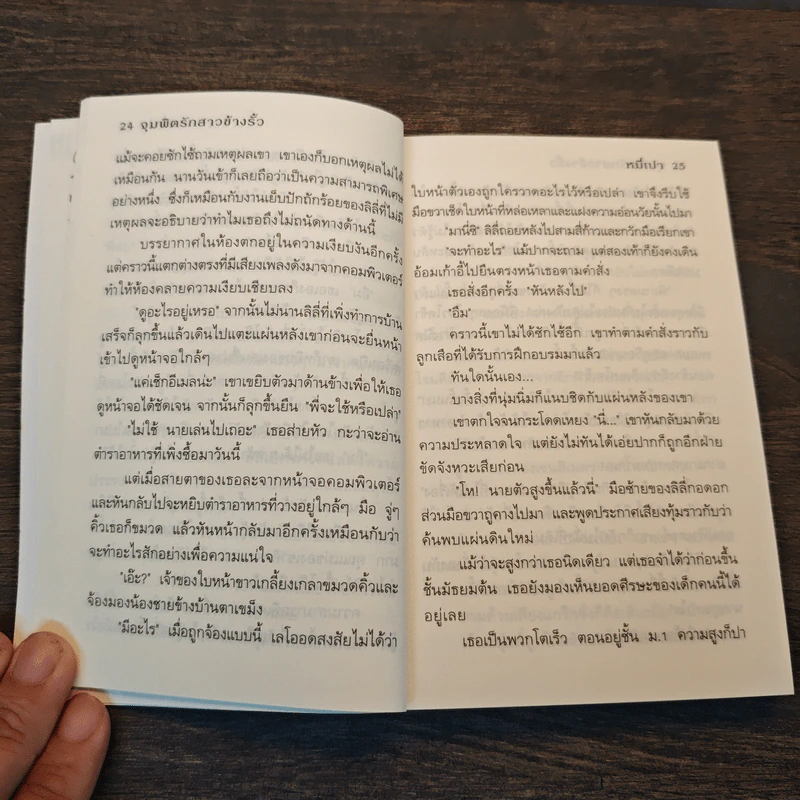 24 จุมพิตรักสาวข้างรั้ว
แม้จะคอยซักไซ้ถามเหตุผลเขา เขาเองก็บอกเหตุผลไม่ได้
เหมือนกัน นานวันเข้าก็เลยถือว่าเป็นความสามารถพิเศษ
อย่างหนึ่ง ซึ่งก็เหมือนกับงานเย็บปักถักร้อยของลิลี่ที่ไม่มี
เหตุผลจะอธิบายว่าทำไมเธอถึงไม่ถนัดทางด้านนี้
บรรยากาศในห้องตกอยู่ในความเงียบงันอีกครั้ง
แต่คราวนี้แตกต่างตรงที่มีเสียงเพลงดังมาจากคอมพิวเตอร์
ทำให้ห้องคลายความเงียบเชียบลง
"ดูอะไรอยู่เหรอ" จากนั้นไม่นานลิลี่ที่เพิ่งทำการบ้าน
เสร็จก็ลุกขึ้นแล้วเดินไปแตะแผ่นหลังเขาก่อนจะยื่นหน้า
เข้าไปดูหน้าจอใกล้ๆ
"แค่เช็กอีเมลน่ะ" เขาขยิบตัวมาด้านข้างเพื่อให้เธอ
ดูหน้าจอได้ชัดเจน จากนั้นก็ลุกขึ้นยืน "พี่จะใช้หรือเปล่า"
"ไม่ใช้ นายเล่นไปเถอะ" เธอส่ายหัว กะว่าจะอ่าน
ตำราอาหารที่เพิ่งซื้อมาวันนี้
แต่เมื่อสายตาของเธอละจากหน้าจอคอมพิวเตอร์
และหันกลับไปจะหยิบตำราอาหารที่วางอยู่ใกล้ๆ มือ จู่ๆ
คิ้วเธอก็ขมวด แล้วหันหน้ากลับมาอีกครั้งเหมือนกับว่า
จะทำอะไรสักอย่างเพื่อความแน่ใจ
"เอ๊ะ?" เจ้าของใบหน้าขาวเกลี้ยงเกลาขมวดคิ้วและ
จ้องมองน้องชายข้างบ้านตาเขม็ง
"มีอะไร" เมื่อถูกจ้องแบบนี้ เลโออดสงสัยไม่ได้ว่า
หมี่เปา 25
ใบหน้าตัวเองถูกใครวาดอะไรไว้หรือเปล่า เขาจึงรีบใช้
มือขวาเช็ดใบหน้าที่หล่อเหลาและแฝงความอ่อนวัยนั้นไปมา
"มานี่ซิ" ลิลี่ถอยหลังไปสามสี่ก้าวและกวักมือเรียกเขา
"จะทำอะไร" แม้ปากจะถาม แต่สองเท้าก็ยังคงเดิน
อ้อมเก้าอี้ไปยืนตรงหน้าเธอตามคำสั่ง
เธอสั่งอีกครั้ง "หันหลังไป"
"อืม"
คราวนี้เขาไม่ได้ซักไซ้อีก เขาทำตามคำสั่งราวกับ
ลูกเสือที่ได้รับการฝึกอบรมมาแล้ว
ทันใดนั้นเอง...
บางสิ่งที่นุ่มนิ่มก็แนบชิดกับแผ่นหลังของเขา
เขาตกใจจนกระโดดเหยง "นี่..." เขาหันกลับมาด้วย
ความประหลาดใจ แต่ยังไม่ทันได้เอ่ยปากก็ถูกอีกฝ่าย
ขัดจังหวะเสียก่อน
"โห! นายตัวสูงขึ้นแล้วนี่" มือซ้ายของลิลี่กอดอก
ส่วนมือขวาถูคางไปมา และพูดประกาศเสียงทุ้มราวกับว่า
ค้นพบแผ่นดินใหม่
แม้ว่าจะสูงกว่าเธอนิดเดียว แต่เธอจำได้ว่าก่อนขึ้น
ชั้นมัธยมต้น เธอยังมองเห็นยอดศีรษะของเด็กคนนี้ได้
อยู่เลย
เธอเป็นพวกโตเร็ว ตอนอยู่ชั้น ม.1 ความสูงก็ปา